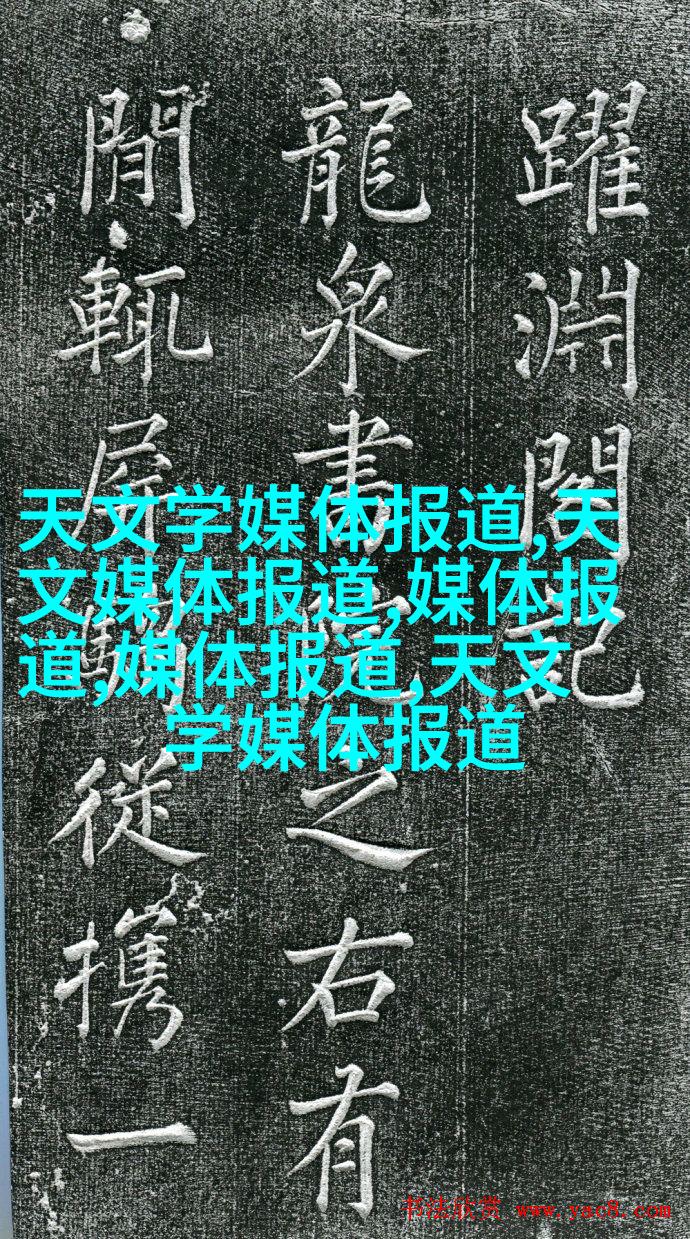 躍淵閣記
龍泉書院之右有
閒輒屏騶從攜一
天文学媒体报道,天
文媒体报道,媒体报
道,媒体报道,天文
学媒体报道
书法欣赏 www.yac8.com